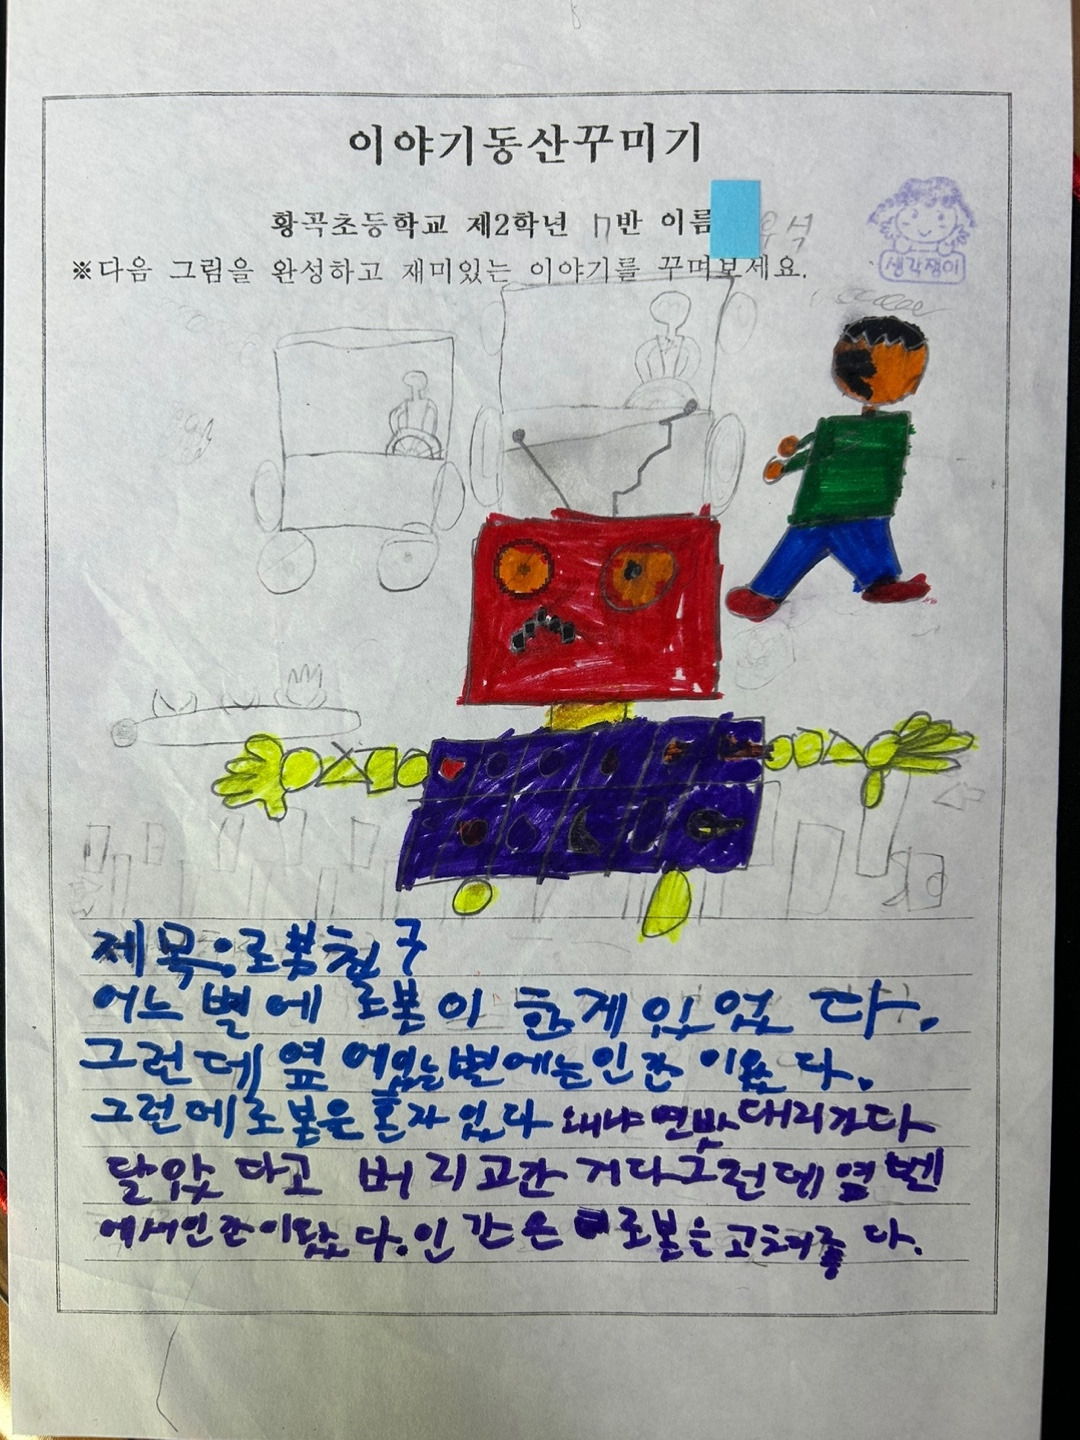 이야기동산꾸미기
황곡초등학교 제2학년 7반 이름 석
생각쟁이
※다음 그림을 완성하고 재미있는 이야기를 꾸며보세요.
제목:로봇친구
어느 별에 로봇이 한게있었다.
그런데 옆에있는별에는인간이
그런데로봇은혼자있다왜냐면
달았다고 버리고간거다그런데옆
에서인간이다.인간은 로봇을고쳐